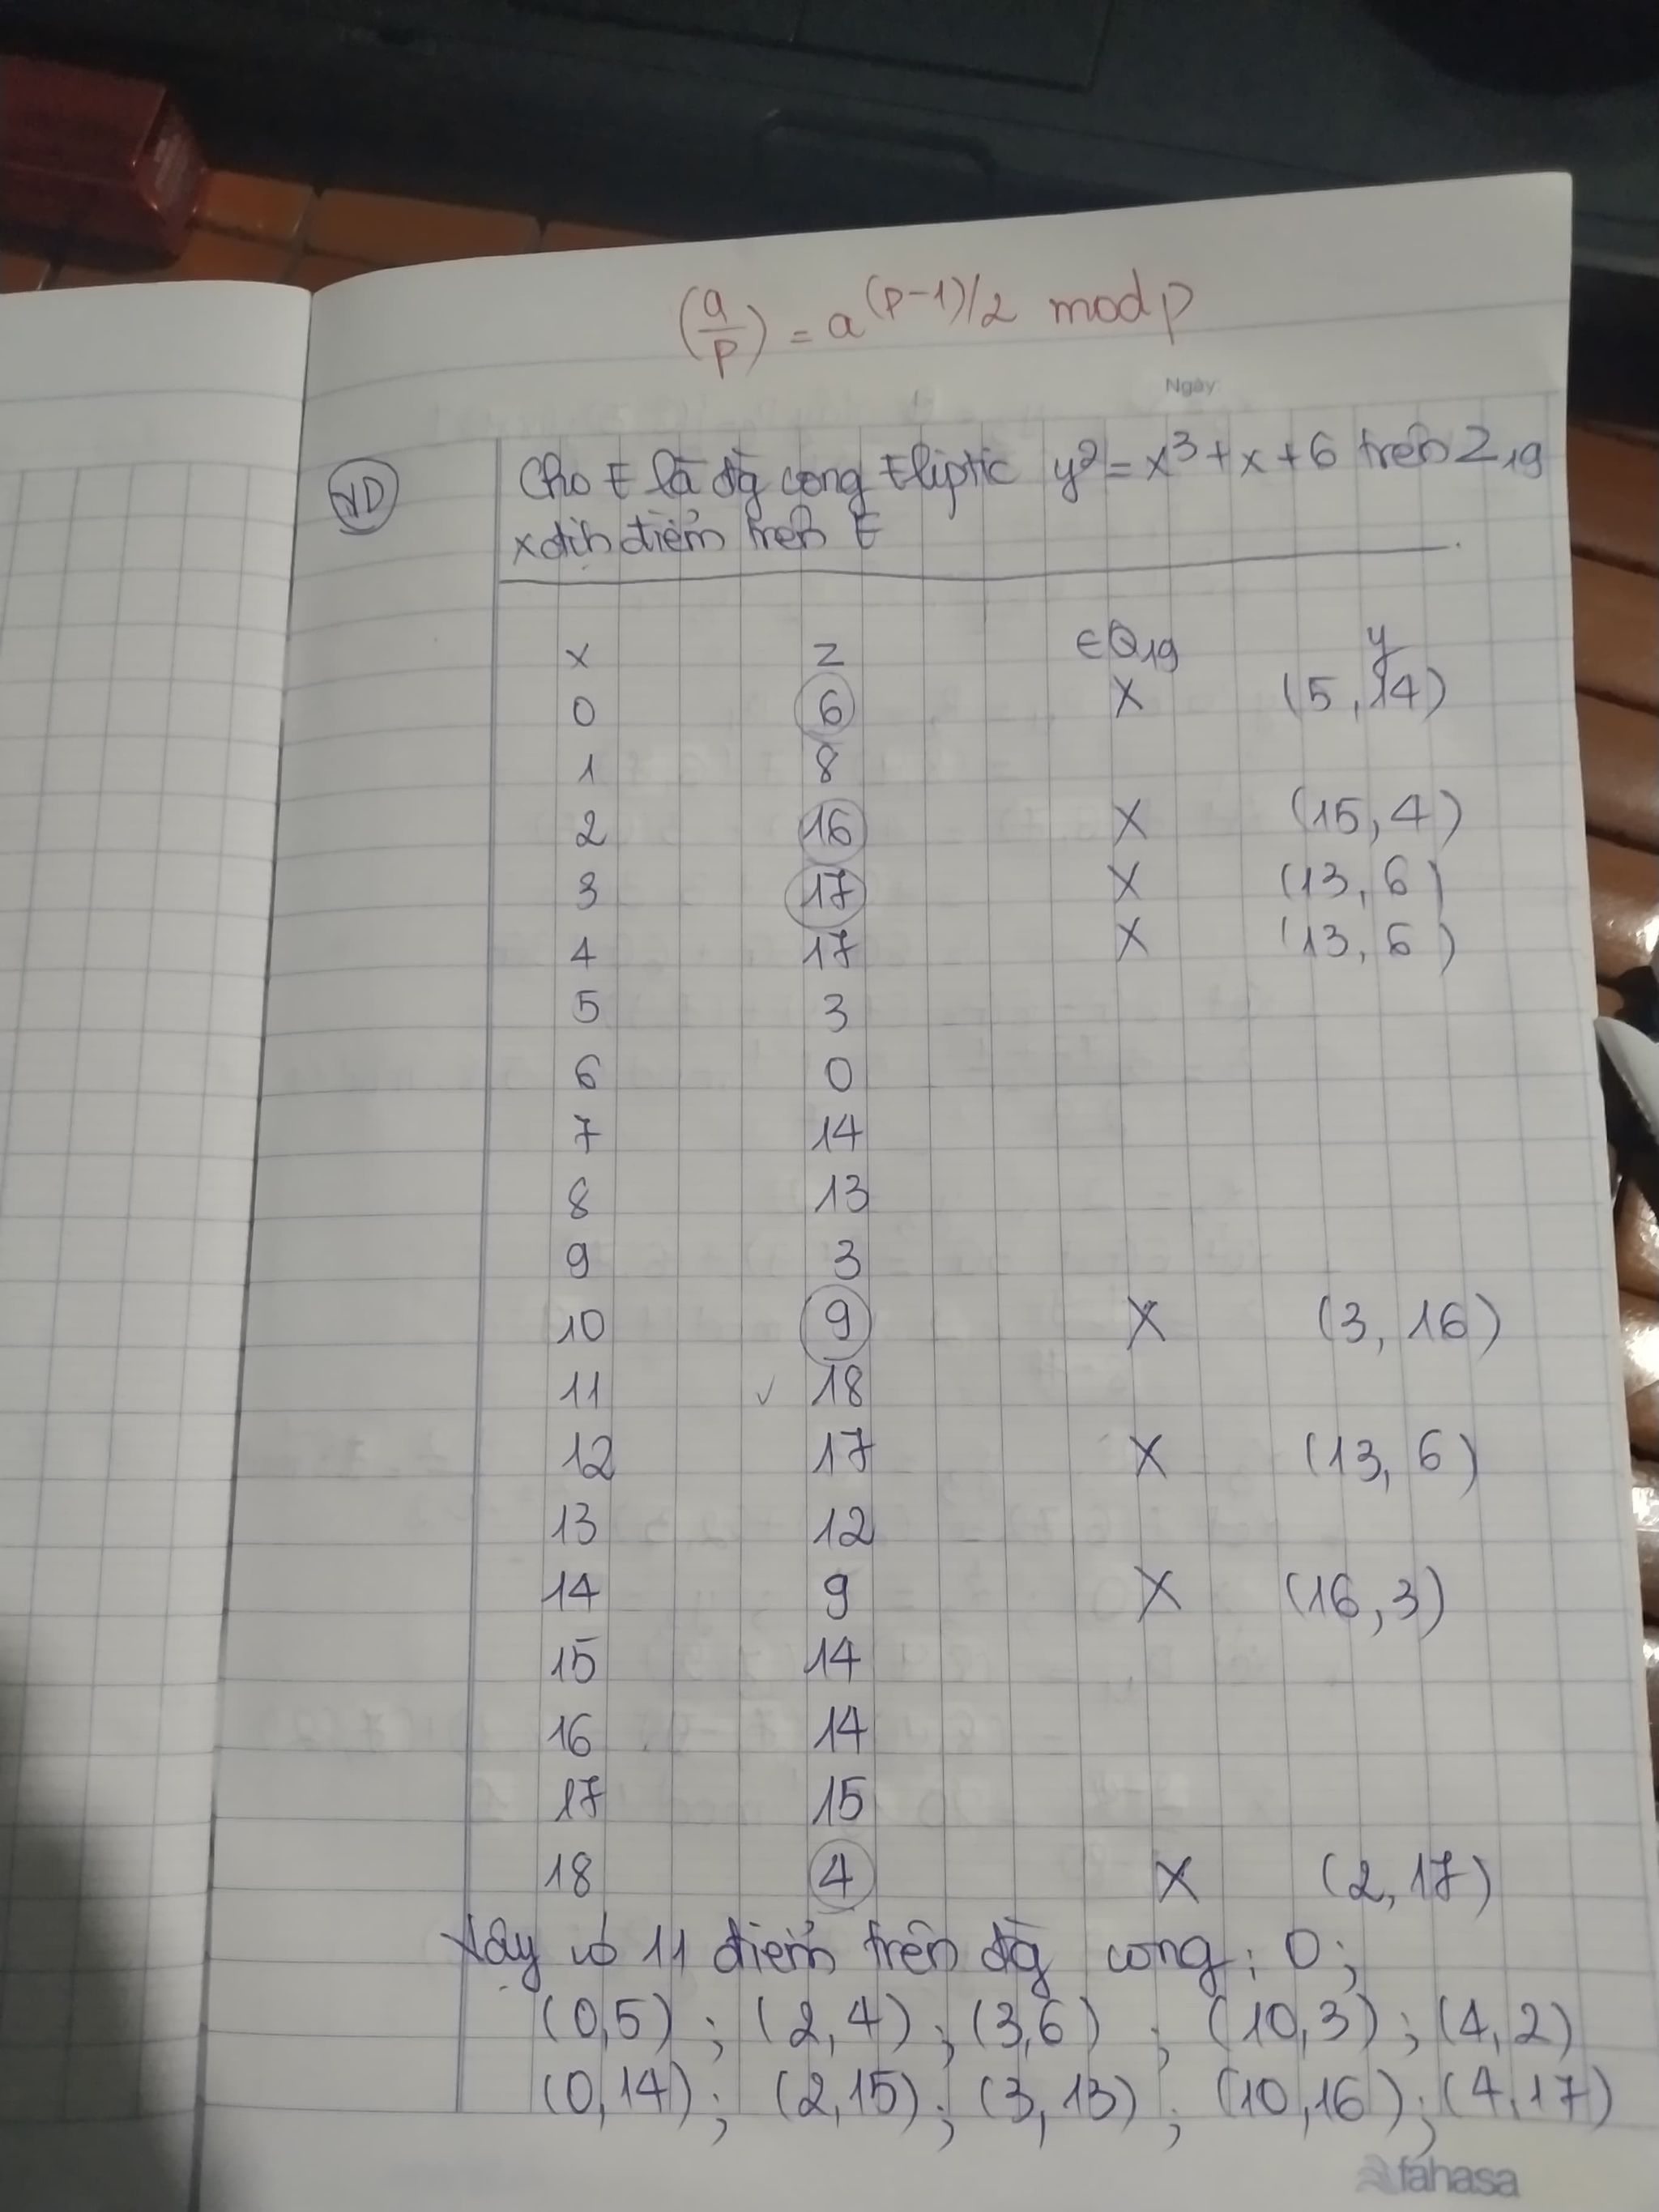 (a/p) = a^(p-1)/2 mod p
Ngày
VD Cho E là đg cong Eliptic y² = x³ + x + 6 trên Z₁₉
xđịnh điểm trên E
x z ∈Q₁₉ y
0 6 X (5, 14)
1 8
2 16 X (15, 4)
3 17 X (13, 6)
4 17 X (13, 6)
5 3
6 0
7 14
8 13
9 3
10 9 X (3, 16)
11 ✓ 18
12 17 X (13, 6)
13 12
14 9 X (16, 3)
15 14
16 14
17 15
18 4 X (2, 17)
Vậy có 11 điểm trên đg cong: O;
(0,5); (2,4); (3,6); (10,3); (4,2)
(0,14); (2,15); (3,13); (10,16); (4,17)
fahasa